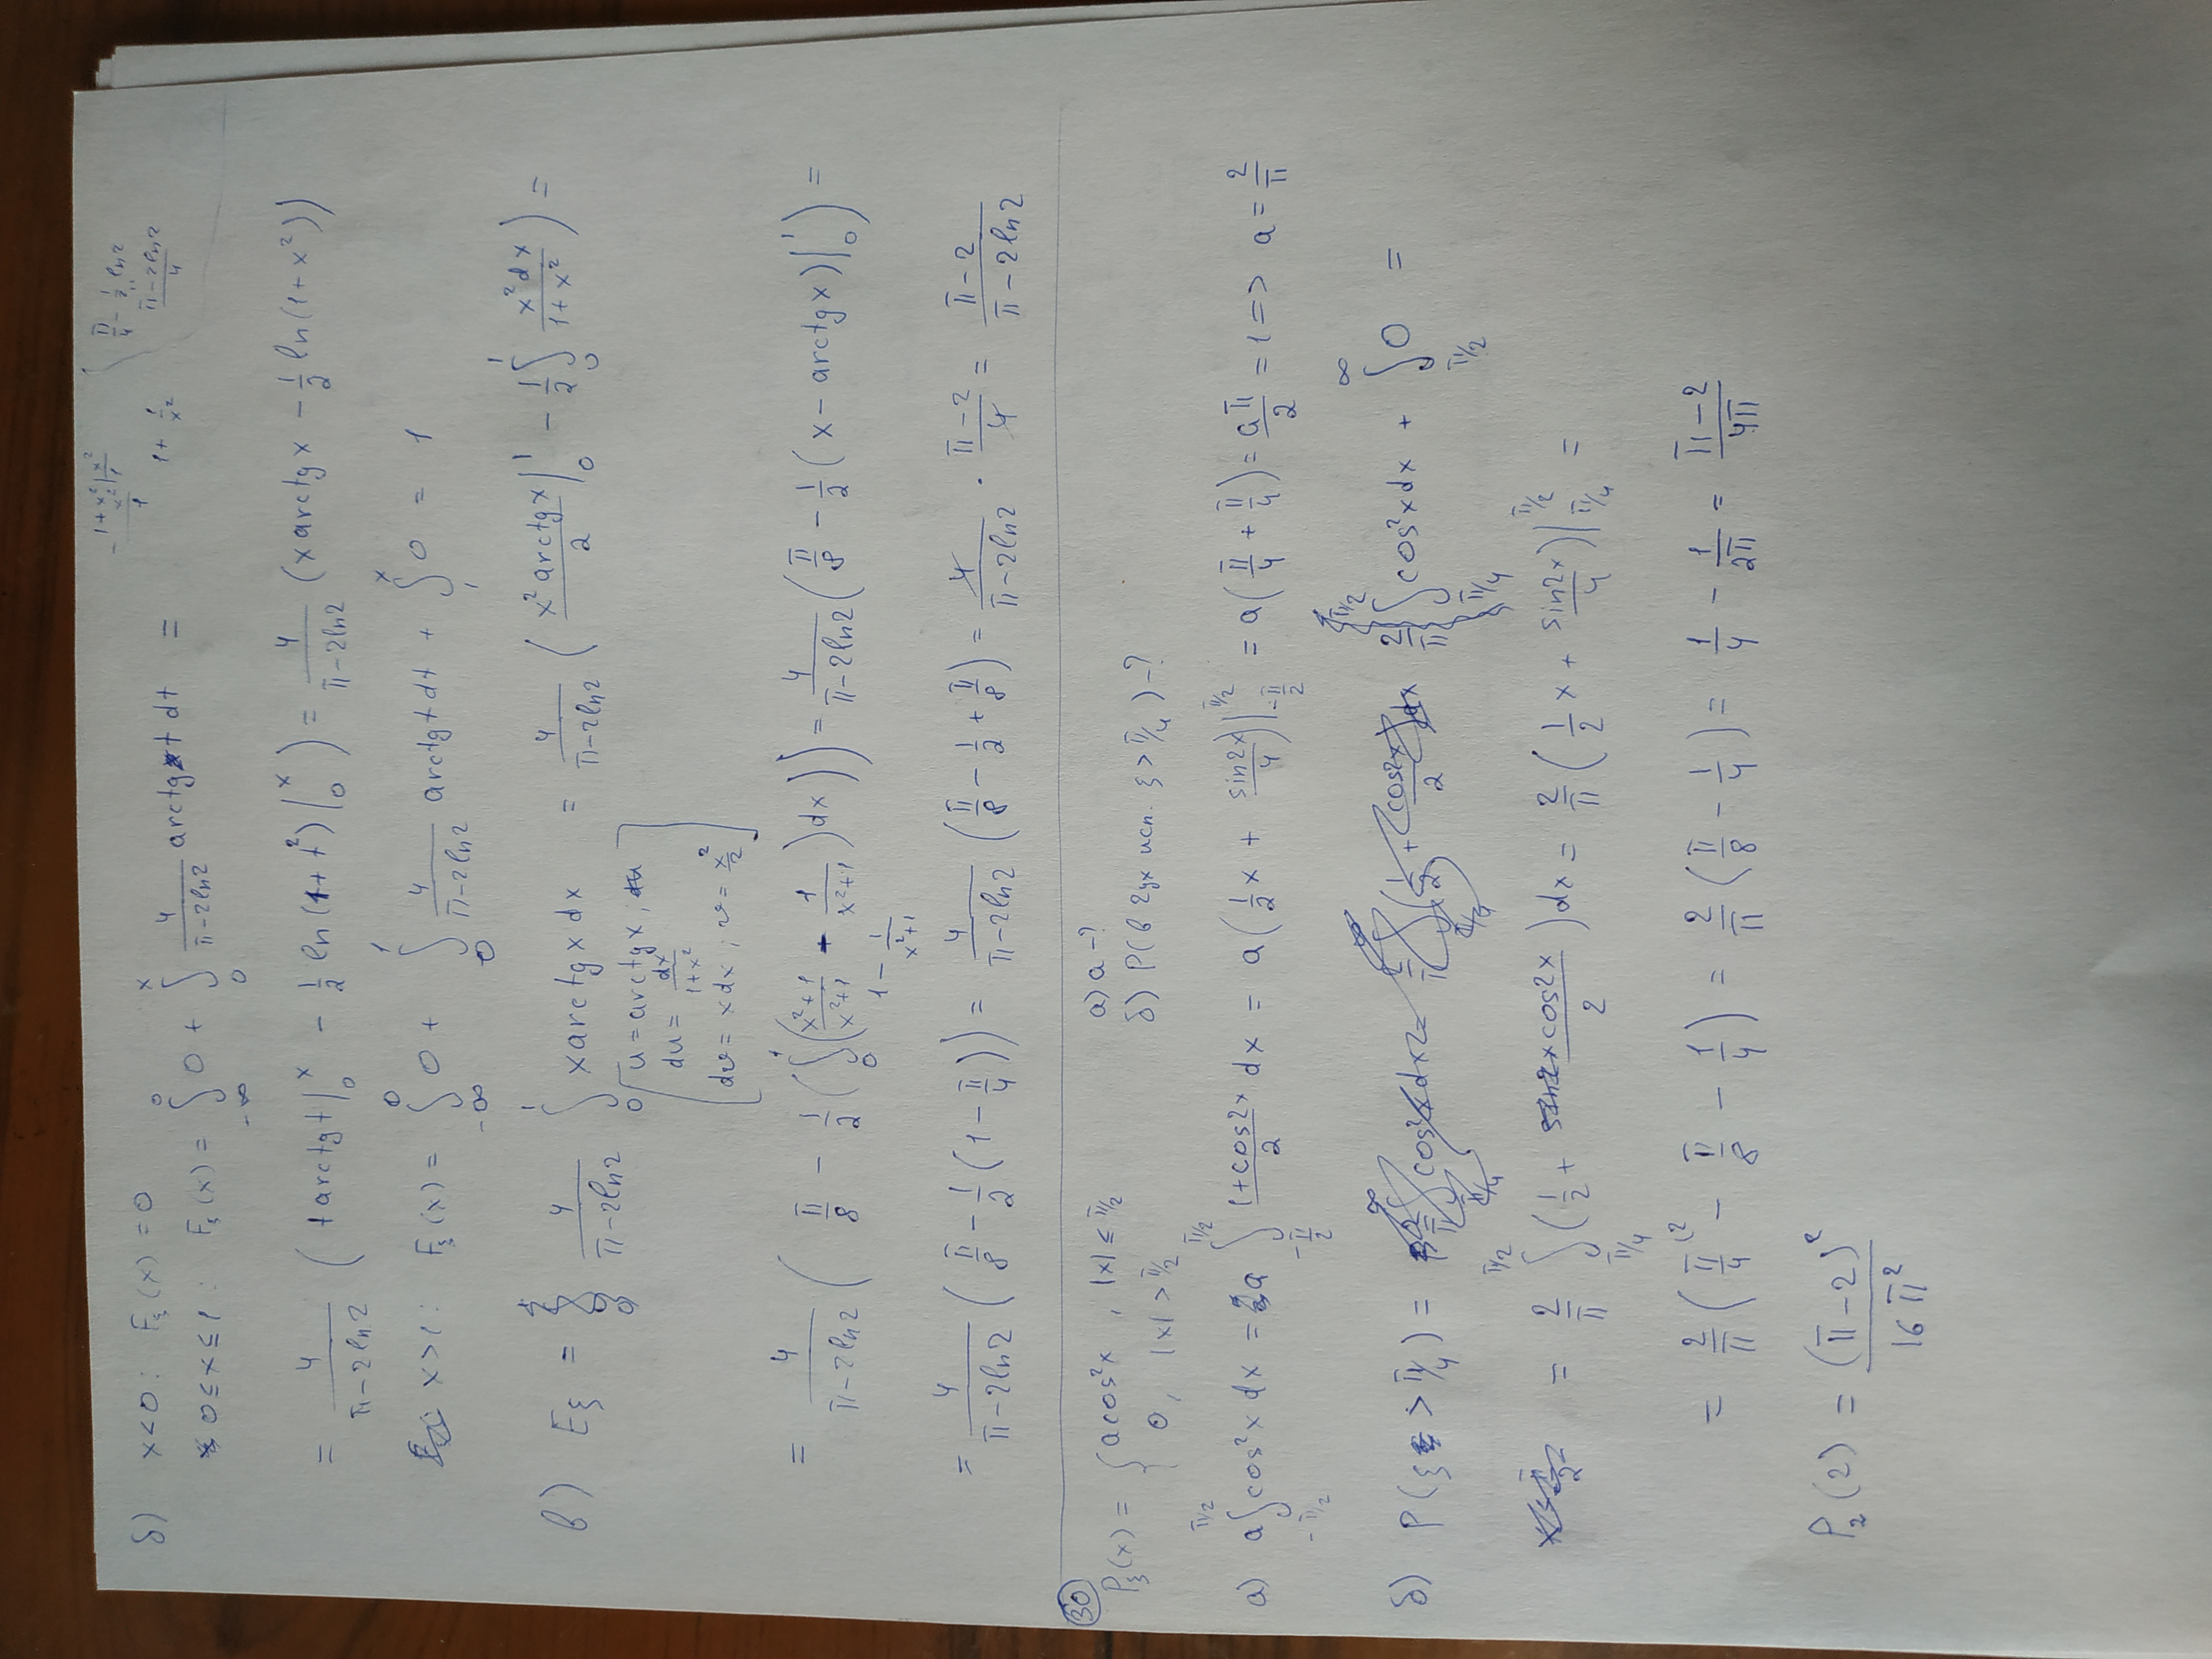 1+x² | x²
x² | 1
1
1 + 1/x²
π/4 - 1/2 ln2
(π-2ln2)/4
б) x<0: Fξ(x) = 0
0≤x≤1: Fξ(x) = ∫_{-∞}^{0} 0 + ∫_{0}^{x} 4/(π-2ln2) arctg t dt =
= 4/(π-2ln2) ( t arctg t |_{0}^{x} - 1/2 ln(1+t²) |_{0}^{x} ) = 4/(π-2ln2) (x arctg x - 1/2 ln(1+x²))
x>1: Fξ(x) = ∫_{-∞}^{0} 0 + ∫_{0}^{1} 4/(π-2ln2) arctg t dt + ∫_{1}^{x} 0 = 1
в) Eξ = 4/(π-2ln2) ∫_{0}^{1} x arctg x dx = 4/(π-2ln2) ( x² arctg x / 2 |_{0}^{1} - 1/2 ∫_{0}^{1} x²dx/(1+x²) ) =
[ u = arctg x,
du = dx/(1+x²)
dv = x dx ; v = x²/2 ]
= 4/(π-2ln2) ( π/8 - 1/2 ( ∫_{0}^{1} ( (x²+1)/(x²+1) - 1/(x²+1) ) dx ) ) = 4/(π-2ln2) ( π/8 - 1/2 ( x - arctg x ) |_{0}^{1} ) =
1 - 1/(x²+1)
= 4/(π-2ln2) ( π/8 - 1/2 ( 1 - π/4 ) ) = 4/(π-2ln2) ( π/8 - 1/2 + π/8 ) = 4/(π-2ln2) · (π-2)/4 = (π-2)/(π-2ln2)
30
Pξ(x) = { a cos²x , |x| ≤ π/2 а) a - ?
0, |x| > π/2 б) P(в 2ух исп. ξ > π/4) - ?
а) a ∫_{-π/2}^{π/2} cos²x dx = a ∫_{-π/2}^{π/2} (1+cos2x)/2 dx = a ( 1/2 x + sin2x/4 ) |_{-π/2}^{π/2} = a ( π/4 + π/4 ) = aπ/2 = 1 => a = 2/π
б) P(ξ > π/4) = 2/π ∫_{π/4}^{π/2} cos²x dx + ∫_{π/2}^{∞} 0 =
= 2/π ∫_{π/4}^{π/2} ( 1/2 + cos2x/2 ) dx = 2/π ( 1/2 x + sin2x/4 ) |_{π/4}^{π/2} =
= 2/π ( π/4 - π/8 - 1/4 ) = 2/π ( π/8 - 1/4 ) = 1/4 - 1/2π = (π-2)/4π
P₂(2) = (π-2)²/16π²